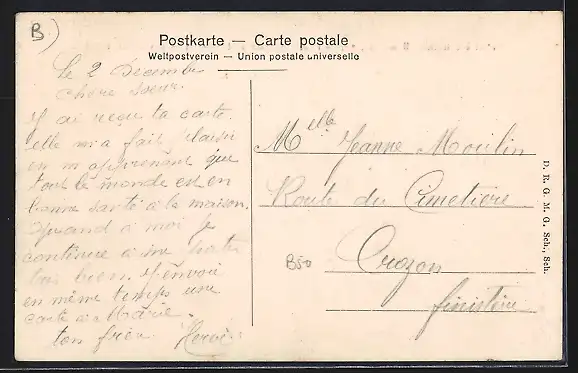 B
Postkarte — Carte postale
Weltpostverein — Union postale universelle
Le 2 Decembre
Chère Soeur.
J'ai reçu ta carte.
elle m'a fait plaisir
en m'apprenant que
tout le monde est en
bonne santé à la maison.
Quand à moi je
continue à me porter
très bien. J'envoi
en même temps une
carte à Marie.
ton frère Hervé
Melle Jeanne Moulin
Route du Cimetiere
Crozon
finistère
B50
D. R. G. M. G. Sch., Sch.